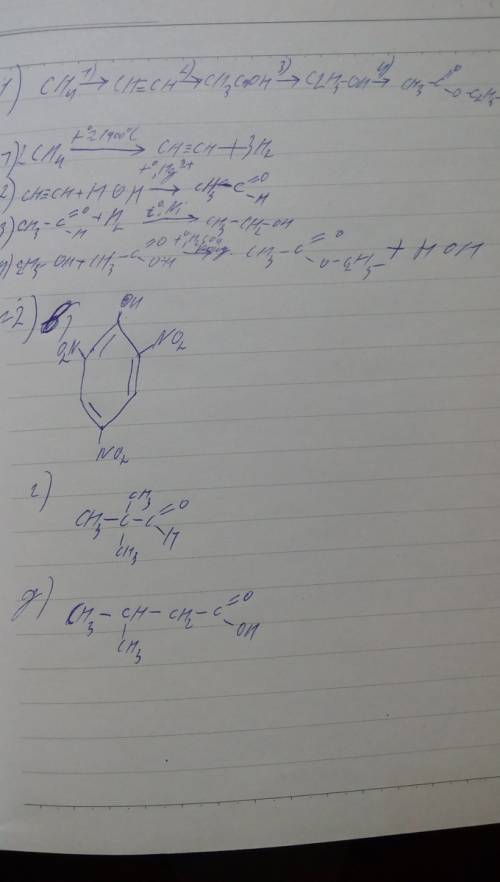 1) CH4 1)→ CH≡CH 2)→ CH3COH 3)→ C2H5-OH 4)→ CH3-C=O O-C2H5
1) 2CH4 t°=1400°C→ CH≡CH + 3H2
2) CH≡CH + HOH t°, Hg2+→ CH3-C=O H
3) CH3-C=O H + H2 t°, Ni→ CH3-CH2-OH
4) C2H5OH + CH3-C=O OH → CH3-C=O O-C2H5 + HOH
2) в)
OH
O2N NO2
NO2
г)
CH3
CH3-C-C=O
H
CH3
д)
CH3-CH-CH2-C=O
OH
CH3